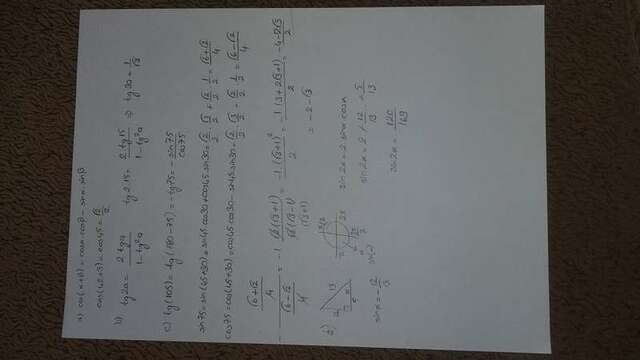 a) cos(α+β) = cosα.cosβ - sinα.sinβ
cos(42+3) = cos45 = √2/2
b) tg2a = 2tga / 1-tg²a   tg2.15 = 2.tg15 / 1-tg²15 ⇒ tg30 = 1/√3
c) tg(105) = tg(180-75) = -tg75 = - sin75 / cos75
sin75 = sin(45+30) = sin45.cos30+cos45.sin30 = √2/2 . √3/2 + √2/2 . 1/2 = √6+√2 / 4
cos75 = cos(45+30) = cos45cos30 - sin45sin30 = √2/2 . √3/2 - √2/2 . 1/2 = √6-√2 / 4
- (√6+√2 / 4) / (√6-√2 / 4) = -1. √2(√3+1) / √2(√3-1) (√3+1) = -1.(√3+1)² / 2 = -1(3+2√3+1) / 2 = -4-2√3 / 2
= -2-√3
2) 12 13 5 α   π/2 π 2π 3π/2   sin2α = 2 sinα cosα
sinα = - 12/13   sin(-)   sin2α = 2 . 12/13 . 5/13
sin2α = 120/169